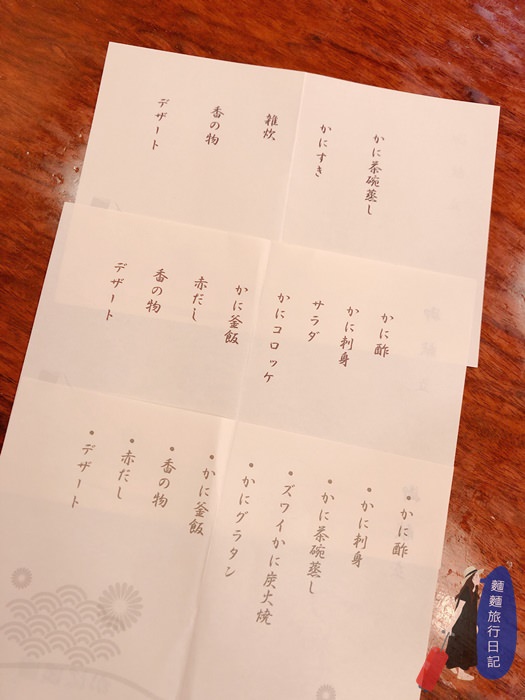 かに茶碗蒸し
かにすき
雑炊
香の物
デザート
かに酢
かに刺身
サラダ
かにコロッケ
かに釜飯
赤だし
香の物
デザート
・かに酢
・かに刺身
・かに茶碗蒸し
・ズワイかに炭火焼
・かにグラタン
・かに釜飯
・香の物
・赤だし
・デザート
麵麵旅行日記